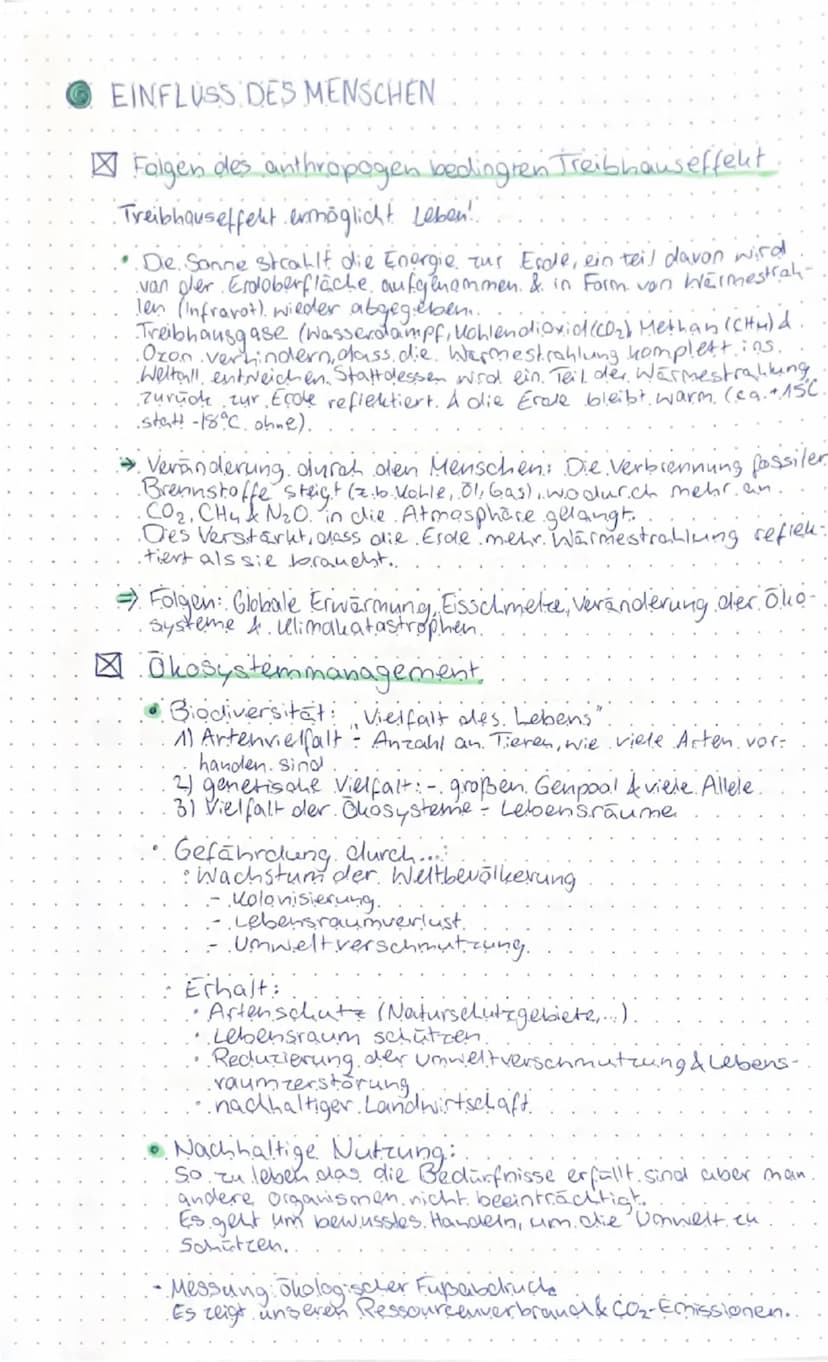 EINFLUSS DES MENSCHEN
Folgen des anthropogen bedingten Treibhauseffekt
Treibhauseffekt ermöglicht Leben!
• Die Sonne strahlt die Energie zur Erde, ein teil davon wird
von der Erdoberfläche aufgenommen & in Form von Wärmestrah-
len (Infrarot) wieder abgegeben.
Treibhausgase (Wasserdampf, Kohlendioxid (CO₂), Methan (CH4) &
Ozon verhindern, dass die Wärmestrahlung komplett ins
Weltall entweichen. Stattdessen wird ein Teil der Wärmestrahlung
zurück zur Erde reflektiert. & die Erde bleibt warm (ca. +15°C
statt -18°C ohne).
→ Veränderung durch den Menschen: Die Verbrennung fossiler
Brennstoffe steigt (z.b. Kohle, Öl, Gas), wodurch mehr an
CO₂, CH4 & N₂O in die Atmosphäre gelangt.
Dies Verstärkt, dass die Erde mehr Wärmestrahlung reflek-
tiert als sie braucht.
⇒ Folgen: Globale Erwärmung, Eisschmelze, Veränderung der Öko-
systeme & Klimakatastrophen.
Ökosystemmanagement
• Biodiversität: „Vielfalt des Lebens"
1) Artenvielfalt - Anzahl an Tieren, wie viele Arten vor-
handen sind
2) genetische Vielfalt: - großen Genpool & viele Allele
3) Vielfalt der Ökosysteme - Lebensräume
• Gefährdung durch...:
• Wachstum der Weltbevölkerung
- Kolonisierung
- Lebensraumverlust
- Umweltverschmutzung
• Erhalt:
• Artenschutz (Naturschutzgebiete,...)
• Lebensraum schützen
• Reduzierung der Umweltverschmutzung & Lebens-
raumzerstörung
• nachhaltiger Landwirtschaft
• Nachhaltige Nutzung:
So zu leben das die Bedürfnisse erfüllt sind aber man
andere Organismen nicht beeinträchtigt.
Es geht um bewusstes Handeln, um die Umwelt zu
Schützen.
- Messung: ökologischer Fußabdruck
Es zeigt unseren Ressourcenverbrauch & CO₂-Emissionen.